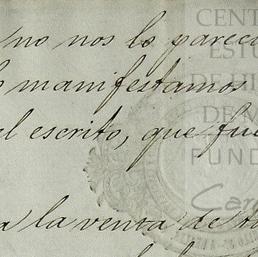 no nos lo pareci
manifestamos
el escrito, que fu
a la venta de
CENT
EST
DE HI
DE M
FUND